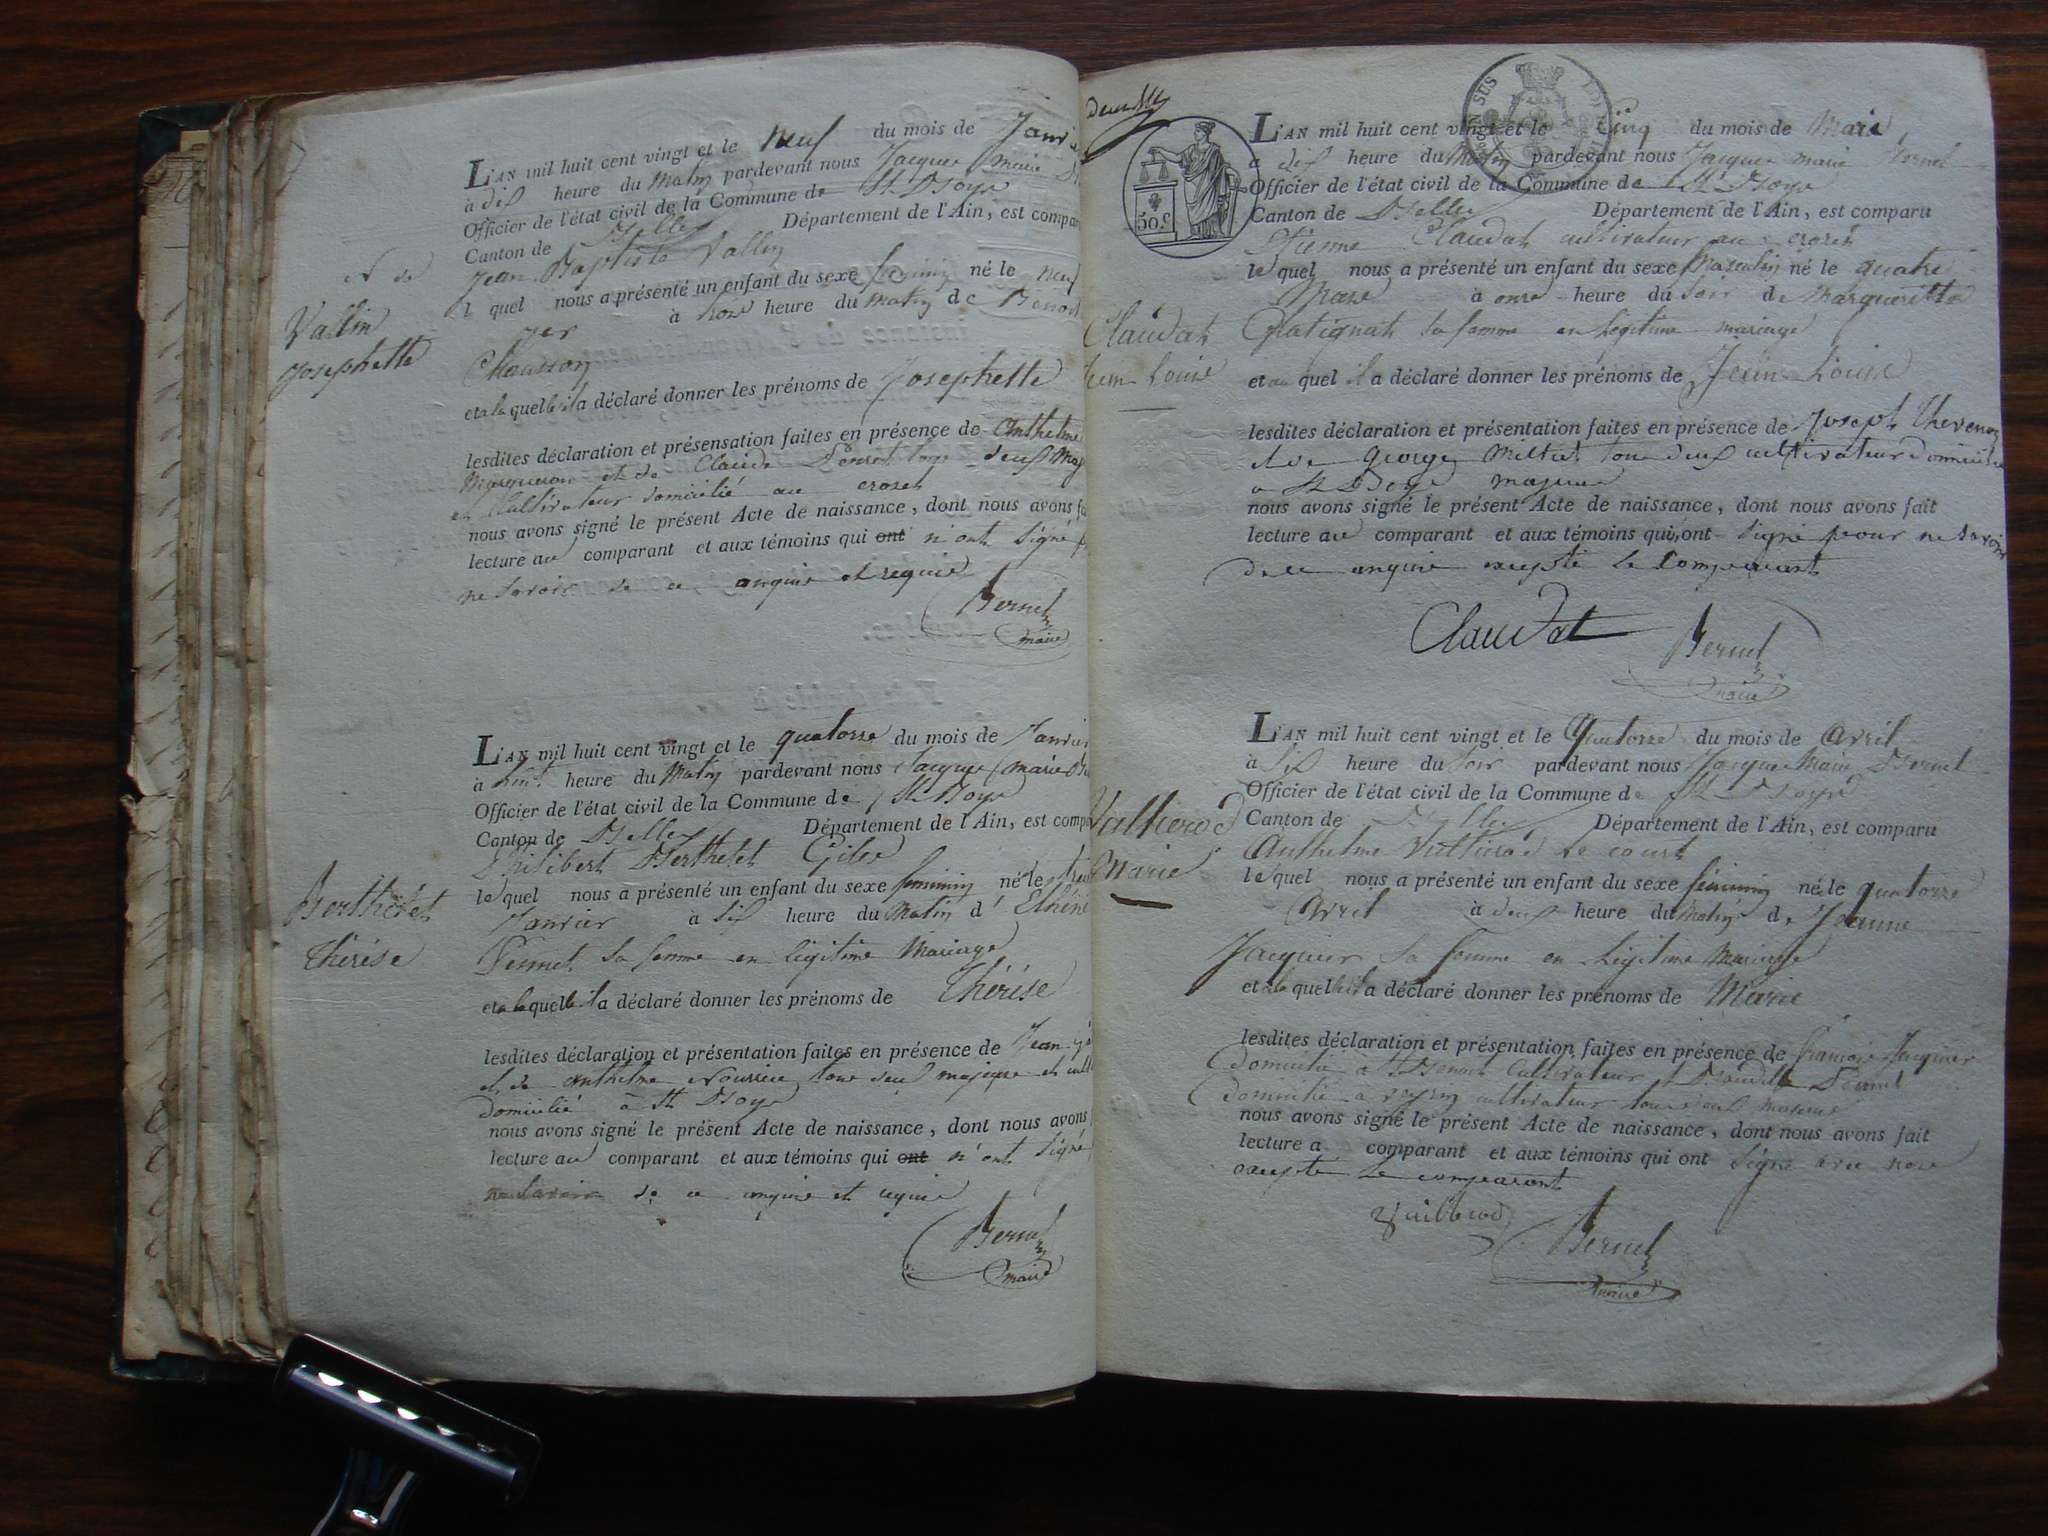 L'AN mil huit cent vingt et le neuf du mois de Janvi
à dix heure du Matin pardevant nous Jacque Marie
Officier de l'état civil de la Commune de St Boys
Canton de Belley Département de l'Ain, est compar
Jean Baptiste Vallin
l quel nous a présenté un enfant du sexe feminin né le neuf
à heure du matin de
Vallin
Josephette
et a la quelle il a déclaré donner les prénoms de Josephette
lesdites déclaration et présensation faites en présence de Anthelme
et de Claude
et Cultivateur domicilié au crozet
nous avons signé le présent Acte de naissance, dont nous avons fa
lecture au comparant et aux témoins qui ont n'ont signé p
ne savoir de ce enquis et requis
Bernel
maire
L'AN mil huit cent vingt et le quatorze du mois de Janvier
à huit heure du Matin pardevant nous Jacque Marie
Officier de l'état civil de la Commune de St Boys
Canton de Belley Département de l'Ain, est compa
Philibert Berthelet
le quel nous a présenté un enfant du sexe feminin né le trei
Janvier à dix heure du Matin d'
Berthelet
Thérése
sa femme en légitime Mariage
et a la quelle il a déclaré donner les prénoms de Thérése
lesdites déclaration et présentation faites en présence de Jean
et de Anthelme tous deux majeure et cult
domicilié à St Boys
nous avons signé le présent Acte de naissance, dont nous avons
lecture au comparant et aux témoins qui ont n'ont signé
ne savoir de ce enquis et requis
Bernel
maire
SUS
50 c
L'AN mil huit cent vingt et le Cinq du mois de Mars
a dix heure du Matin pardevant nous Jacque marie Bernel
Officier de l'état civil de la Commune de St Boys
Canton de Belley Département de l'Ain, est comparu
Etienne Claudat cultivateur au crozet
le quel nous a présenté un enfant du sexe Masculin né le quatre
Mars à onze heure du soir de Margueritte
Claudat
Jean Louis
Gratignat sa femme en légitime mariage
et au quel il a déclaré donner les prénoms de Jean Louis
lesdites déclaration et présentation faites en présence de Joseph Thevenon
et de George Milliet tous deux cultivateur domicilié
a St Boys majeure
nous avons signé le présent Acte de naissance, dont nous avons fait
lecture au comparant et aux témoins qui n'ont signé pour ne savoir
de ce enquis excepté le Comparant
Claudat
Bernel
maire
L'AN mil huit cent vingt et le Quatorze du mois de Avril
à six heure du soir pardevant nous Jacque Marie Bernel
Officier de l'état civil de la Commune de St Boys
Canton de Belley Département de l'Ain, est comparu
Anthelme
le quel nous a présenté un enfant du sexe féminin né le quatorze
Avril à deux heure du matin de Jeanne
Marie
Jacquier sa femme en légitime Mariage
et a la quelle il a déclaré donner les prénoms de Marie
lesdites déclaration et présentation faites en présence de françois Jacquier
domicilié à St Benoit Cultivateur et
domicilié a cultivateur tous deux majeure
nous avons signé le présent Acte de naissance, dont nous avons fait
lecture a comparant et aux témoins qui ont signé avec nous
excepté le comparant
Bernel
maire